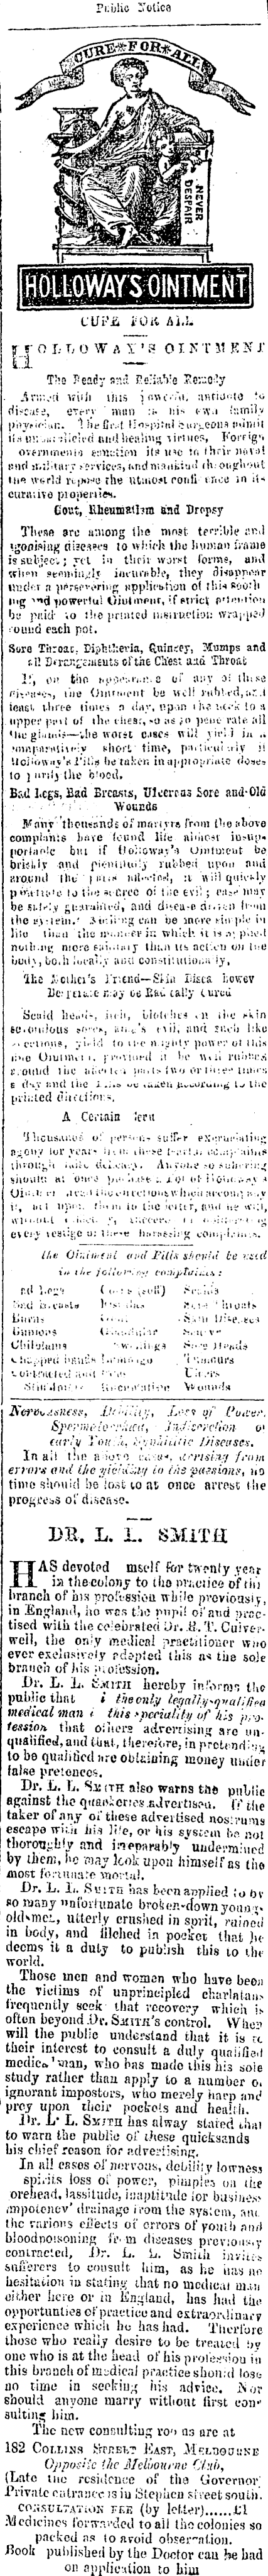 Public Notice
CURE FOR ALL
NEVER
DESPAIR
HOLLOWAY'S OINTMENT
CURE FOR ALL
HOLLOWAY'S OINTMENT
The Ready and Reliable Remedy
Armed with this powerful antidote to
disease, every man is his own family
physician. The first Hospital Surgeons admit
its healing virtues, Foreign
overnments sanction its use to their naval
and military services, and mankind throughout
the world repose the utmost confi ence in its
curative properties.
Gout, Rheumatism and Dropsy
These are among the most terrible and
agonising diseases to which the human frame
is subject; yet in their worst forms, and
when seemingly incurable, they disappear
under a persevering application of this sooth
ing and powerful Ointment, if strict attention
be paid to the printed instruction wrapped
round each pot.
Sore Throat, Diphtheria, Quinsey, Mumps and
all Derangements of the Chest and Throat
If, on the appearance of any of these
diseases, the Ointment be well rubbed, at
least three times a day, upon the neck to a
upper part of the chest, so as to pene rate all
the glands—the worst cases will yield in a
comparatively short time, particularly if
Holloway's Pills be taken in appropriate doses
to purify the blood.
Bad Legs, Bad Breasts, Ulcerous Sore and Old
Wounds
Many thousands of martyrs from the above
complaints have found life almost insup-
portable but if Holloway's Ointment be
briskly and plentifully rubbed upon and
around the parts affected, it will quickly
penetrate to the source of the evil; ease may
be safely guaranteed, and disease driven from
the system. Nothing can be more simple in
than the manner in which it is applied
nothing more salutary than its action on the
body, both locally and constitutionally,
The Mother's Friend—Skin Disea howev
Desperate may be Radically Cured
Scald heads, itch, blotches on the skin
scrofulous sores, king's evil, and such like
to the mighty power of this
fine Ointment, provided it be well rubbed
around the affected parts two or three times
a day and the Pills be taken according to the
printed directions.
A Certain
Thousands of persons suffer excruciating
agony for years from these complaints
through false delicacy. Anyone so suffering
should at once purchase a Pot of Holloway's
Ointment read the directions which accompany
it, act upon them to the letter, and he will,
without
every vestige of these harassing complaints.
the Ointment and Pills should be used
in the following complaints:
ad Legs Corns (soft) Scalds
Bad Breasts Fistulas Sore Throats
Burns Gout Skin Diseases
Bunions Glandular Scurvy
Chilblains wellings Sore Heads
Chapped hands Lumbago Tumours
Contracted and Piles Ulcers
Stiff Joints Rheumatism Wounds
Nervousness, Debility, Loss of Power,
Spermatorrhœa, Indiscretion of
early Youth, Syphilitic Diseases.
In all the above cases, arising from
errors and the yielding to the passions, no
time should be lost to at once arrest the
progress of disease.
DR. L. L. SMITH
HAS devoted mself for twenty year
in the colony to the practice of thi
branch of his profession while previously,
in England, ho was the pupil of and prac-
tised with the celebrated Dr. R. T. Culver-
well, the only medical practitioner who
ever exclusively adopted this as the sole
branch of his profession.
Dr. L. L. SMITH hereby informs the
public that i the only legally-qualified
medical man i this speciality of his pro-
fession that others advertising are un-
qualified, and that, therefore, in pretending
to be qualified are obtaining money under
false pretences.
Dr. L. L. SMITH also warns the public
against the quackeries advertised. If the
taker of any of these advertised nostrums
escape with his life, or his system be not
thoroughly and irreparably undermined
by them, he may look upon himself as the
most fortunate mortal.
Dr. L. L. SMITH has been applied to by
so many unfortunate broken-down young-
old-men, utterly crushed in sprit, ruined
in body, and filched in pocket that he
deems it a duty to publish this to the
world.
Those men and women who have been
the victims of unprincipled charlatans
frequently seek that recovery which is
often beyond Dr. SMITH's control. When
will the public understand that it is to
their interest to consult a duly qualified
medica' man, who has made this his sole
study rather than apply to a number of
ignorant impostors, who merely harp and
prey upon their pockets and health.
Dr. L' L. SMITH has alway stated that
to warn the public of these quicksands
his chief reason for advertising.
In all cases of nervous, debility lowness
spirits loss of power, pimples on the
orehead, lassitude, inaptitude for business
impotency' drainage from the system, and
the various effects of errors of youth and
bloodpoisoning from diseases previously
contracted, Dr. L. L. Smith invites
sufferers to consult him, as he has no
hesitation in stating that no medical man
either here or in England, has had the
opportunties of practice and extraordinary
experience which he has had. Therfore
those who really desire to be treated by
one who is at the head of his profession in
this branch of medical practice should lose
no time in seeking his advice. Nor
should anyone marry without first con-
sulting him.
The new consulting roo us are at
182 COLLINS STREET EAST, MELBOURNE
Opposite the Melbourne Club,
(Late the residence of the Governor)
Private entrance is in Stephen street south.
CONSULTATION FEE (by letter)......£1
Medicines forwarded to all the colonies so
packed as to avoid observation.
Book published by the Doctor can he had
on application to him